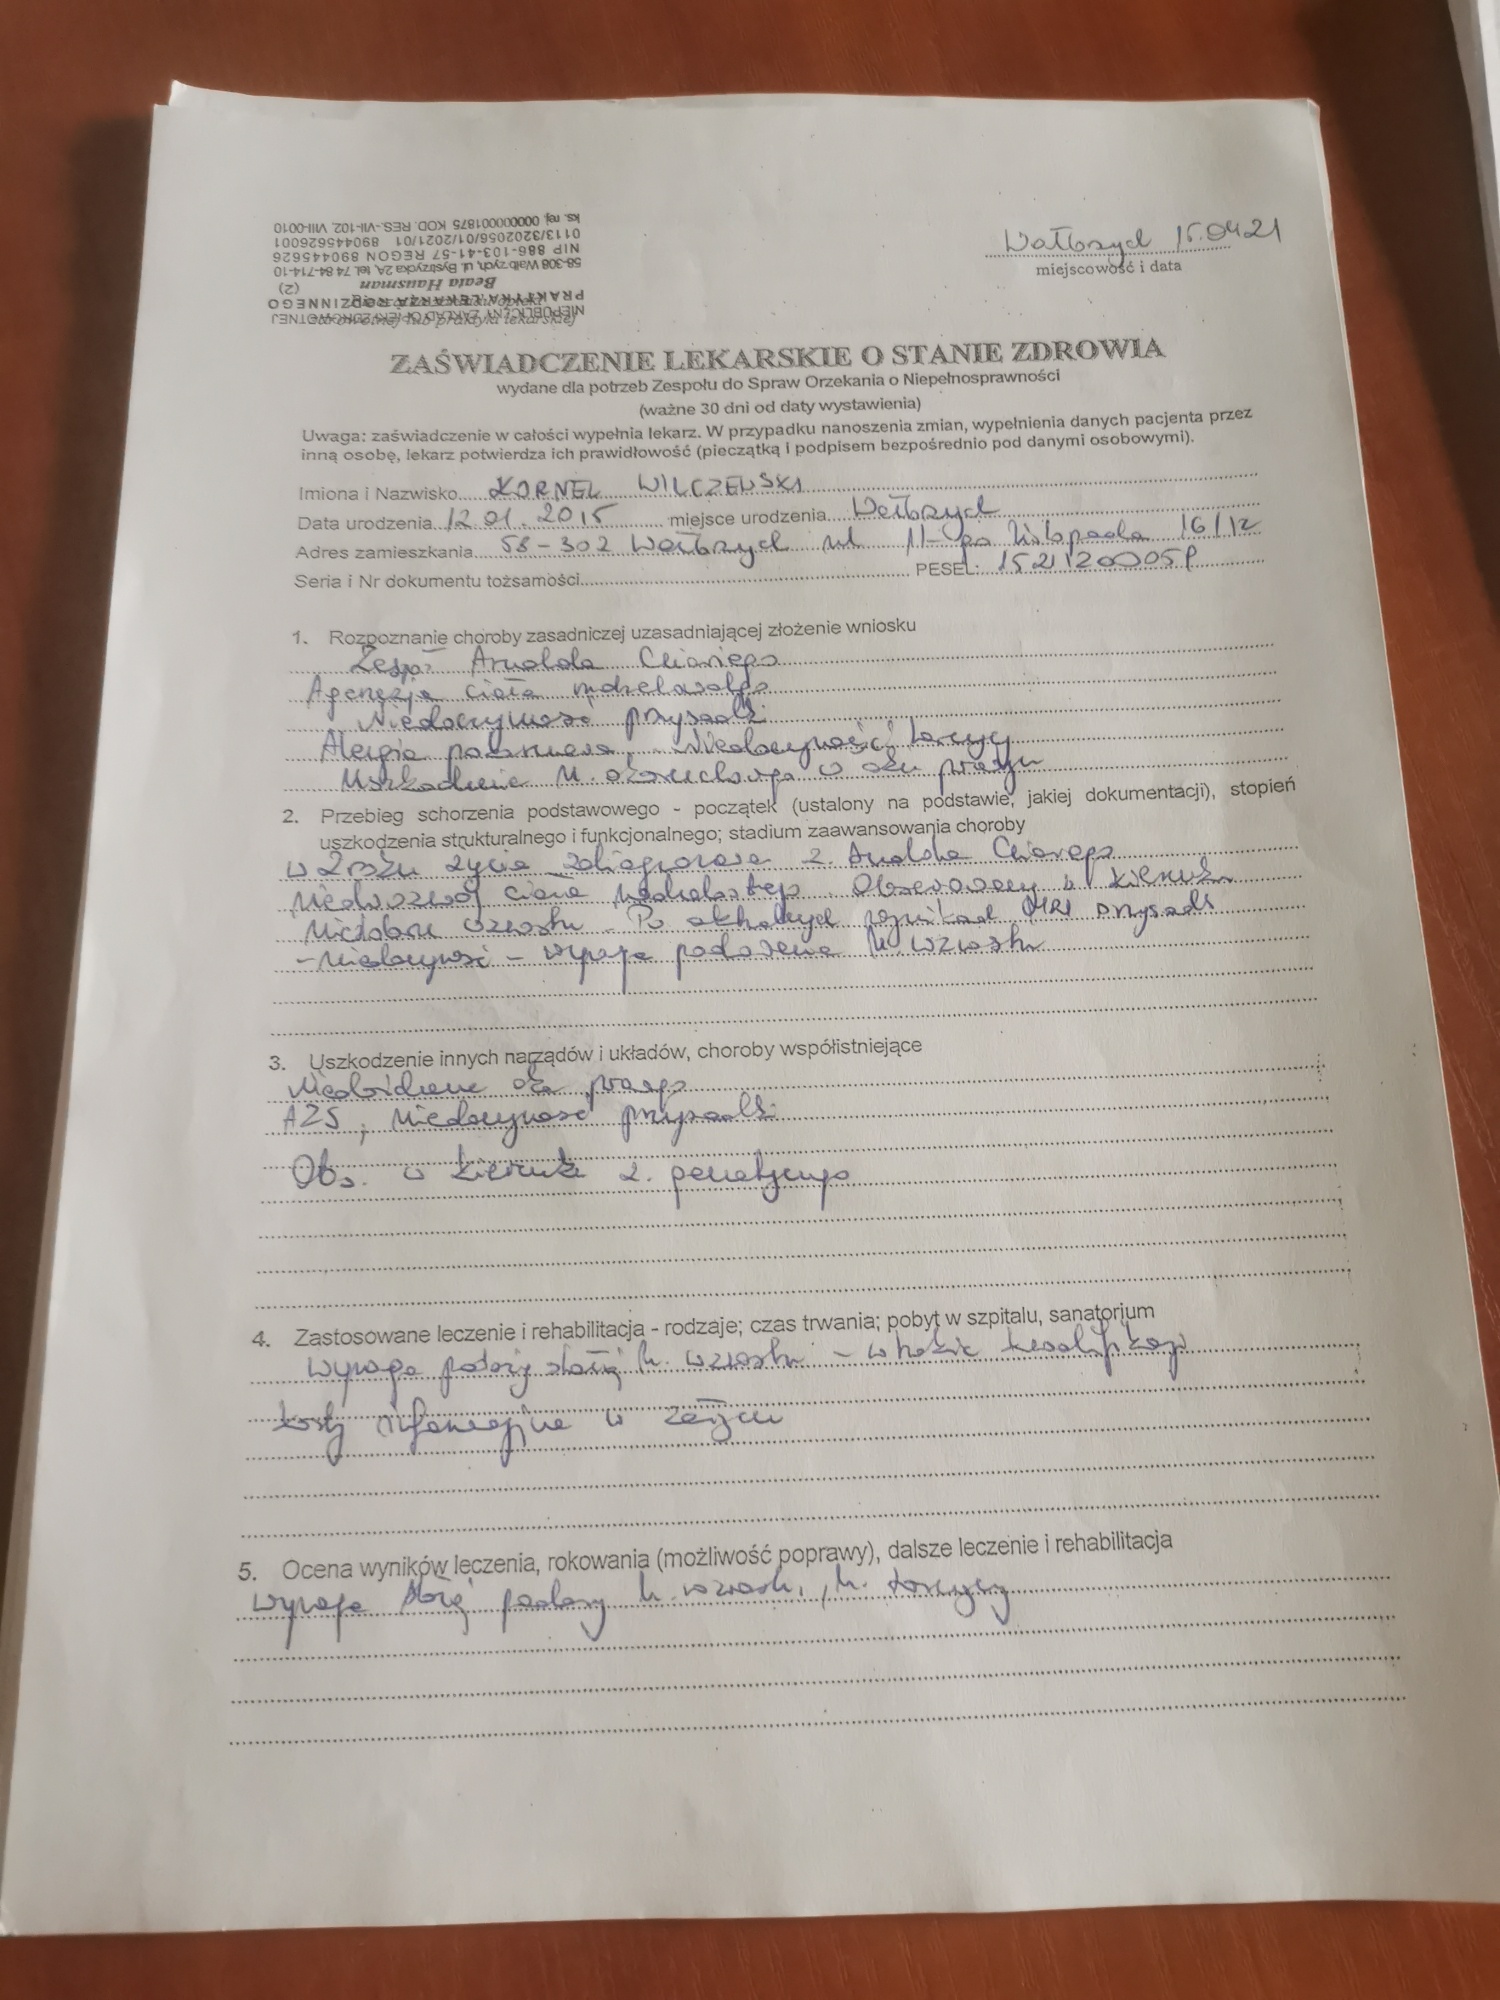 NIEPUBLICZNY ZAKŁAD OPIEKI ZDROWOTNEJ
PRAKTYKA LEKARZA RODZINNEGO
Beata Hausman (2)
58-308 Wałbrzych, ul. Bystrzycka 2A, tel. 74 84-714-10
NIP 886-103-41-57 REGON 890445626
0113/3202056/01/2021/01 89044562600
ks. rej. 000000001875 KOD. RES.-VII-102, VIII-0010
zdrowotnej lub praktyki lekarskiej
Wałbrzych 15.04.21
miejscowość i data
ZAŚWIADCZENIE LEKARSKIE O STANIE ZDROWIA
wydane dla potrzeb Zespołu do Spraw Orzekania o Niepełnosprawności
(ważne 30 dni od daty wystawienia)
Uwaga: zaświadczenie w całości wypełnia lekarz. W przypadku nanoszenia zmian, wypełnienia danych pacjenta przez
inną osobę, lekarz potwierdza ich prawidłowość (pieczątką i podpisem bezpośrednio pod danymi osobowymi).
Imiona i Nazwisko KORNEL WILCZEWSKI
Data urodzenia 12.01.2015 miejsce urodzenia Wałbrzych
Adres zamieszkania 58-302 Wałbrzych ul 11-go Listopada 16/12
Seria i Nr dokumentu tożsamości PESEL:
1. Rozpoznanie choroby zasadniczej uzasadniającej złożenie wniosku
Zesp. Arnolda Chiariego
Agenezja ciała modzelowatego
Niedoczynność przysadki
Alergia pokarmowa, Niedoczynność tarczycy
Uszkodzenie n. wzrokowego w oku prawym
2. Przebieg schorzenia podstawowego - początek (ustalony na podstawie, jakiej dokumentacji), stopień
uszkodzenia strukturalnego i funkcjonalnego; stadium zaawansowania choroby
w życia zdiagnozowano z. Arnolda Chiariego
niedorozwój ciała Obserwowany w kierunku
niedoboru wzrostu. Po wynikach MRI przysadki
- niedoczynność - wymaga podawania h. wzrostu
3. Uszkodzenie innych narządów i układów, choroby współistniejące
Niedowidzenie oka prawego
AZS, Niedoczynność przysadki
Obs. w kierunku z. genetycznego
4. Zastosowane leczenie i rehabilitacja - rodzaje; czas trwania; pobyt w szpitalu, sanatorium
wymaga podaży h. wzrostu - w trakcie kwalifikacji
w
5. Ocena wyników leczenia, rokowania (możliwość poprawy), dalsze leczenie i rehabilitacja
wymaga stałej podaży h. wzrostu, h. tarczycy